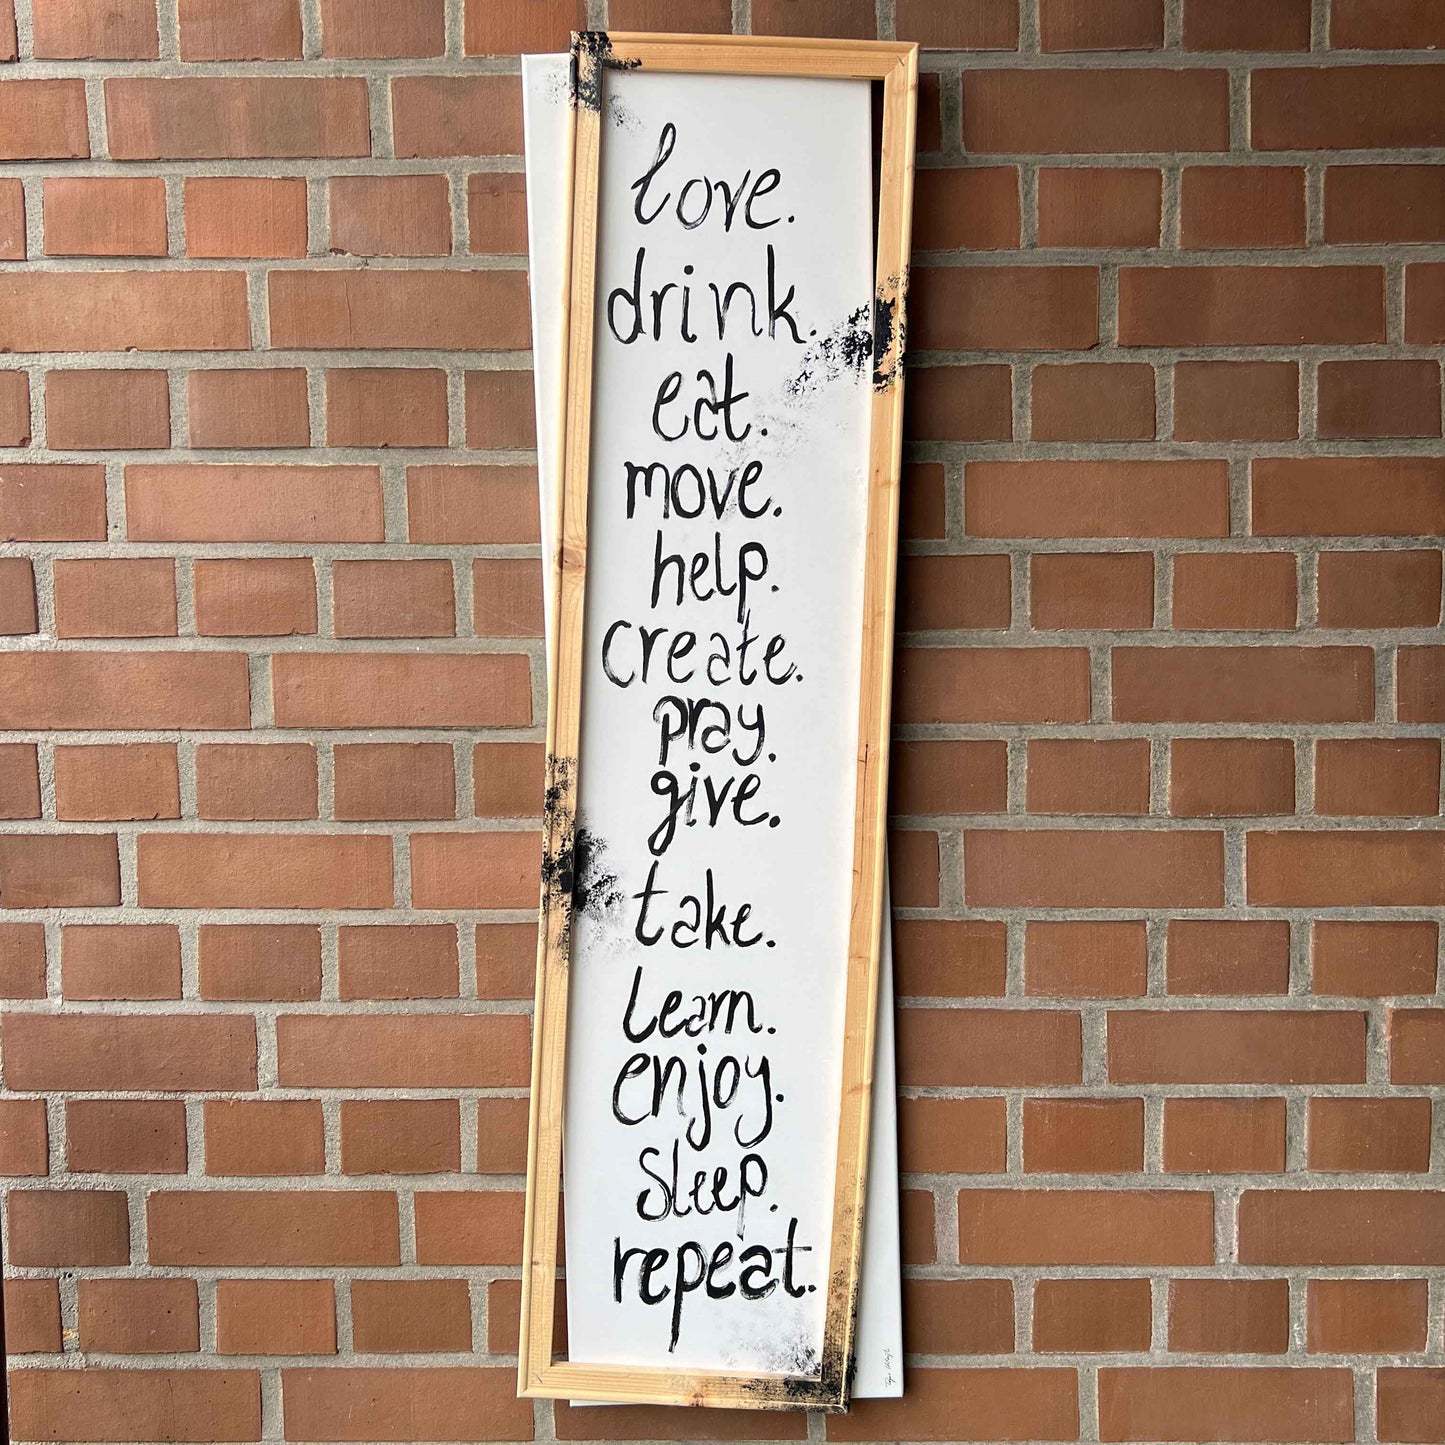 love.
drink.
eat.
move.
help.
create.
pray.
give.
take.
learn.
enjoy.
sleep.
repeat.